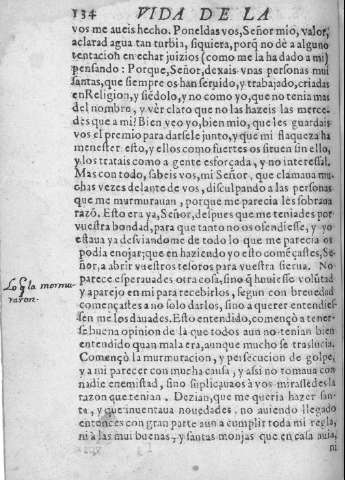 134 VIDA DE LA
vos me aueis hecho. Poneldas vos, Señor mio, valor,
aclarad agua tan turbia, siquiera, porq̃ no dè a alguno
tentacioñ en echar juizios (como me la ha dado a mi)
pensando: Porque, Señor, dexais vnas personas mui
santas, que siempre os han seruido, y trabajado, criadas
en Religion, y siẽdolo, y no como yo, que no tenia mas
del nombre, y vèr claro que no las hazeis las merce-
des que a mi? Bien veo yo, bien mio, que les guardais
vos el premio para darsele junto, y que mi flaqueza ha
menester esto, y ellos como fuertes os siruen sin ello,
y los tratais como a gente esforçada, y no interessal.
Mas con todo, sabeis vos, mi Señor, que clamaua mu-
chas vezes delante de vos, disculpando a las personas
que me murmurauan, porque me parecia les sobraua
razõ. Esto era ya, Señor, despues que me teniades por
vuestra bondad, para que tanto no os ofendiesse, y yo
estaua ya desuiandome de todo lo que me parecia os
podia enojar; que en haziendo yo esto começastes, Se-
ñor, a abrir vuestros tesoros para vuestra sierua. No
parece esperauades otra cosa, sino q̃ huuiesse volutad
y aparejo en mi para recebirlos, segun con breuedad
començastes a no solo darlos, sino a querer entendies-
sen me los dauades. Esto entendido, començò a tener-
se buena opinion de la que todos aun no tenian bien
entendido quan mala era, aunque mucho se traslucia.
Començò la murmuracion, y persecucion de golpe,
y a mi parecer con mucha causa, y assi no tomaua con
nadie enemistad, sino suplicauaos à vos mirassedes la
razon que tenian. Dezian, que me queria hazer san-
ta, y que inuentaua nouedades, no auiendo llegado
entonces con gran parte aun a cumplir toda mi regla,
ni à las mui buenas, y santas monjas que en casa auia,
ni
Lo q̃ la mormu
raron.